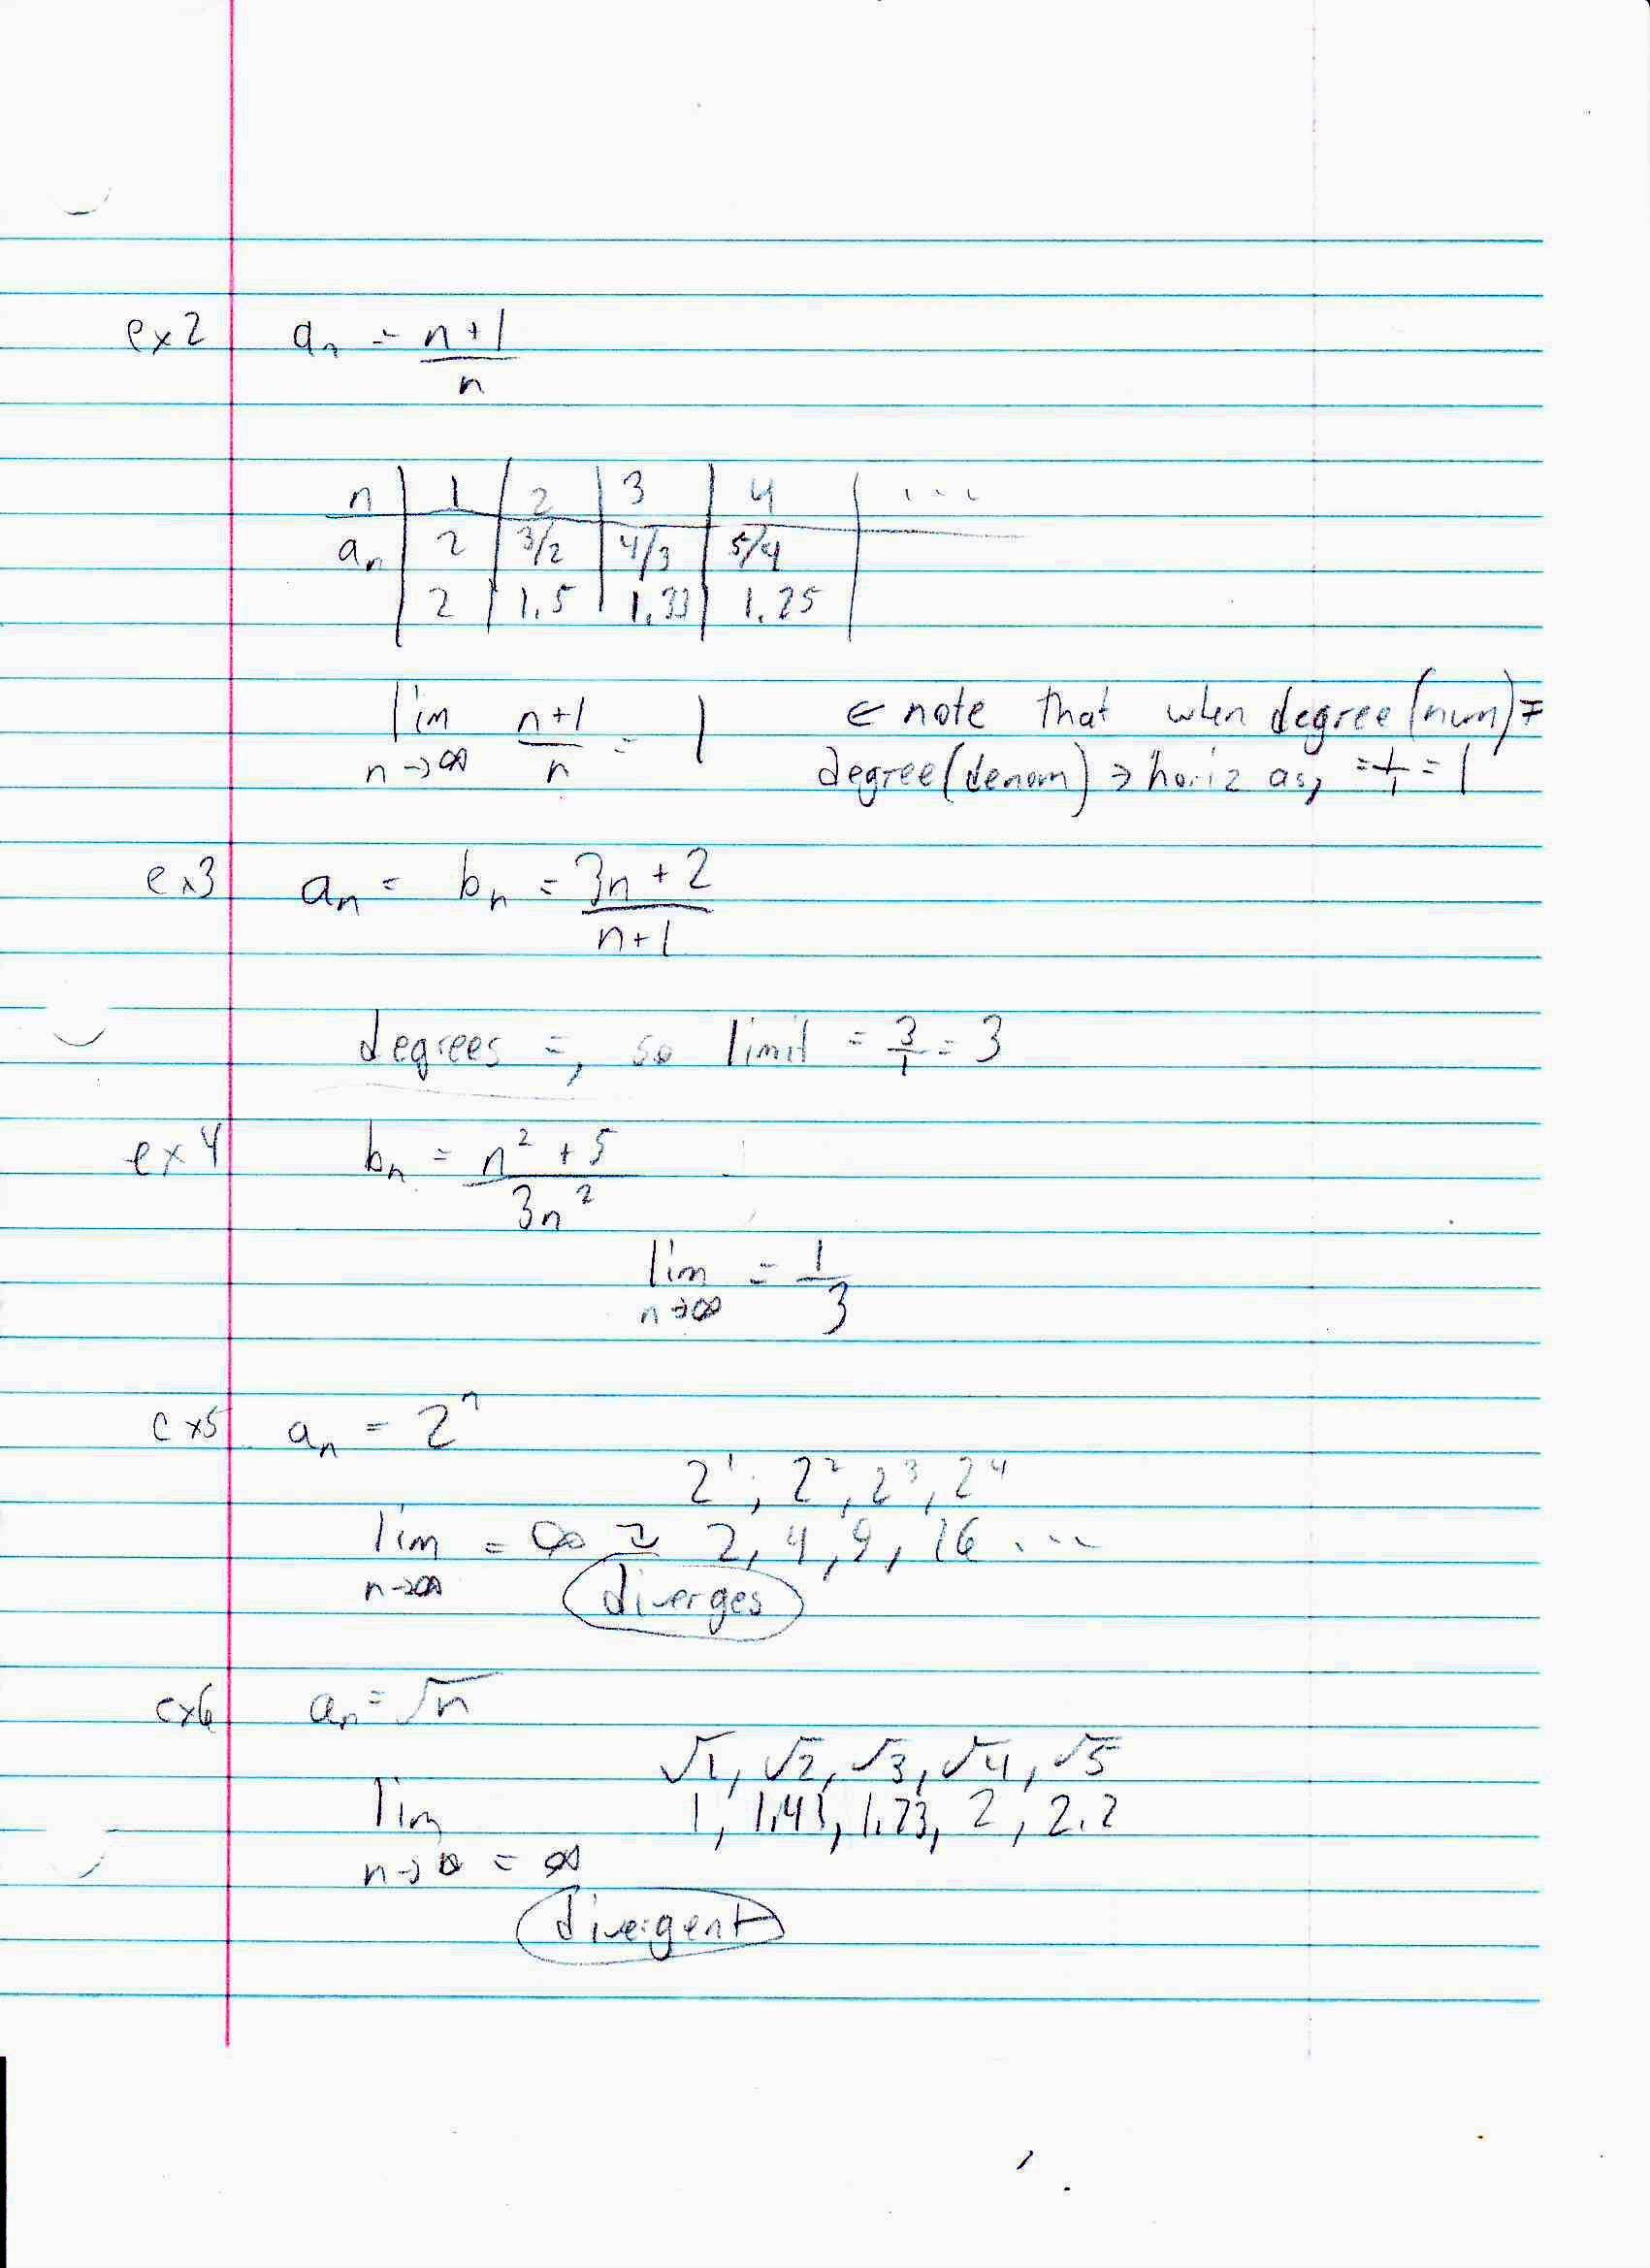 ex2 aₙ = n+1
n
n | 1 | 2 | 3 | 4 | ...
aₙ | 2 | 3/2 | 4/3 | 5/4 |
2 | 1.5 | 1.33 | 1.25 |
lim n+1 = 1 ← note that when degree(num) =
n→∞ n degree(denom) → horiz as, = 1/1 = 1
ex3 aₙ = bₙ = 3n+2
n+1
degrees =, so limit = 3/1 = 3
ex4 bₙ = n² + 5
3n²
lim = 1
n→∞ 3
ex5 aₙ = 2ⁿ
2¹, 2², 2³, 2⁴
lim = ∞ 2, 4, 8, 16 ...
n→∞ diverges
ex6 aₙ = √n
√1, √2, √3, √4, √5
lim 1, 1.41, 1.73, 2, 2.2
n→∞ = ∞
divergent